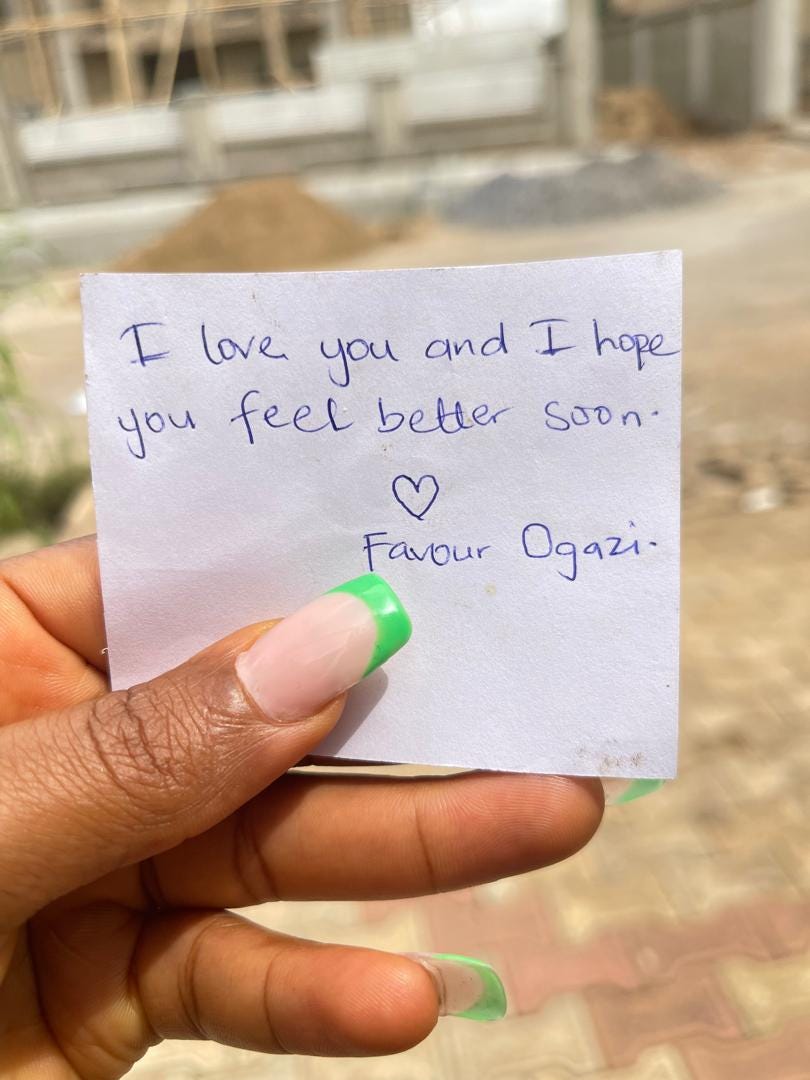 I love you and I hope
you feel better soon.
♡
Favour Ogazi.